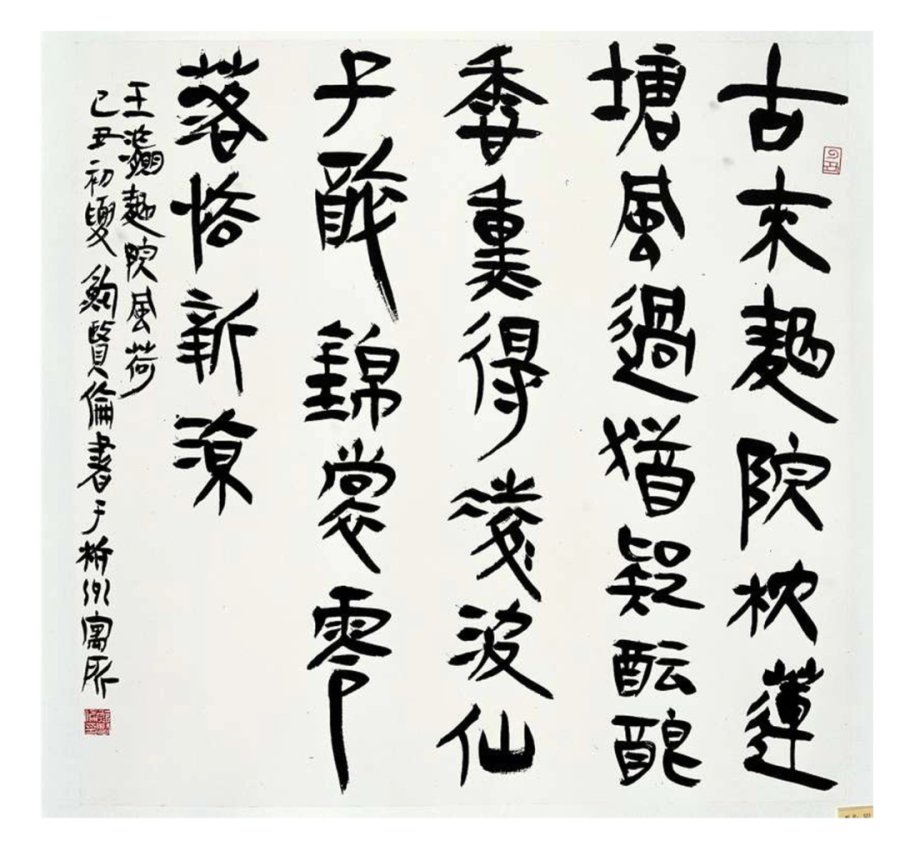 古來麯院枕蓮
塘風過猶疑醖釀
香熏得凌波仙
子醉錦裳零
落怯新涼
王瀛麯院風荷
己丑初夏鮑賢倫書于杭州寓所